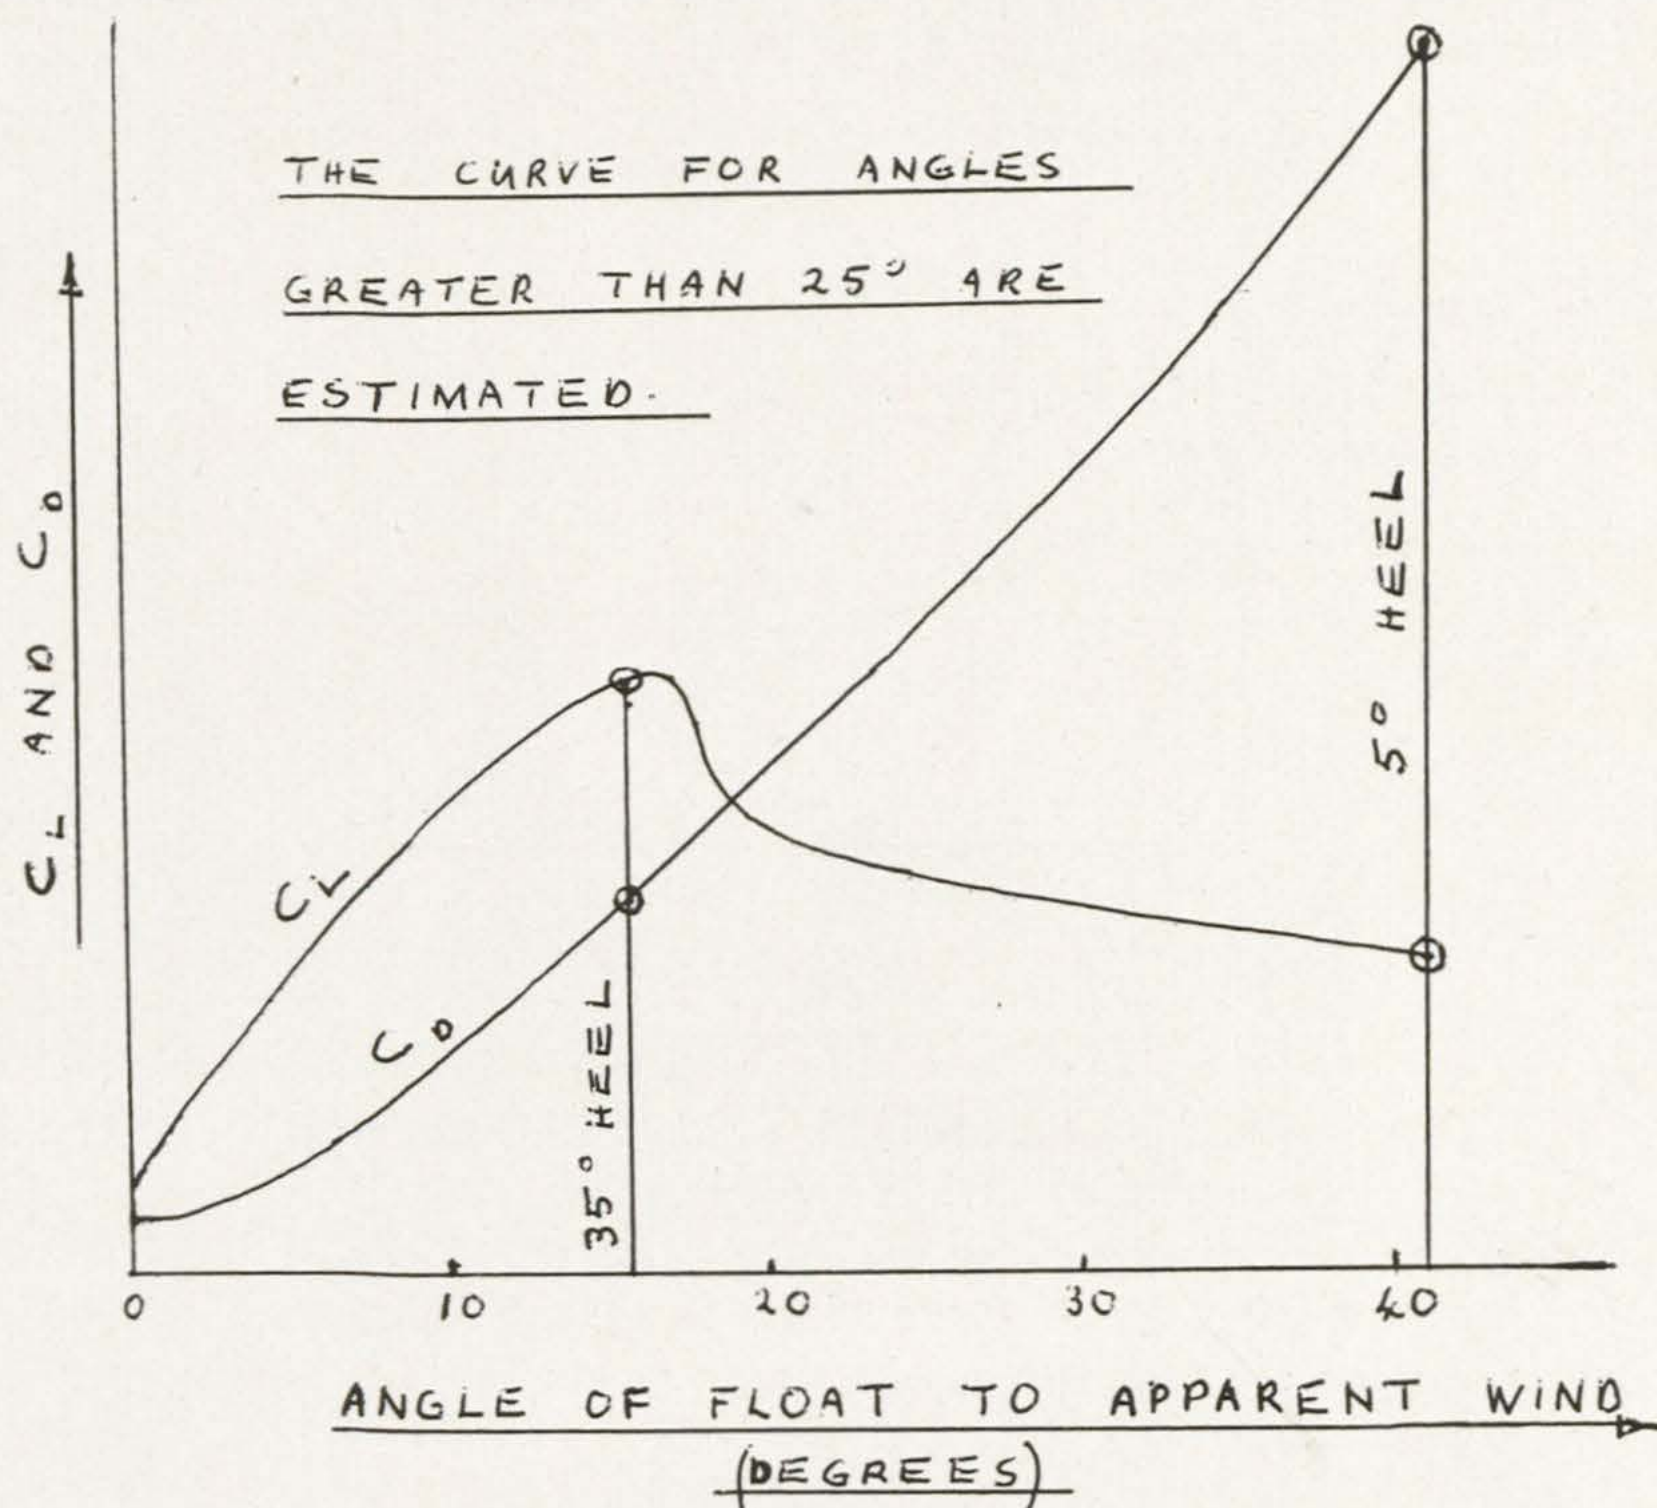 THE CURVE FOR ANGLES
GREATER THAN 25° ARE
ESTIMATED.
CL AND CD
CL
CD
35° HEEL
5° HEEL
0 10 20 30 40
ANGLE OF FLOAT TO APPARENT WIND
(DEGREES)